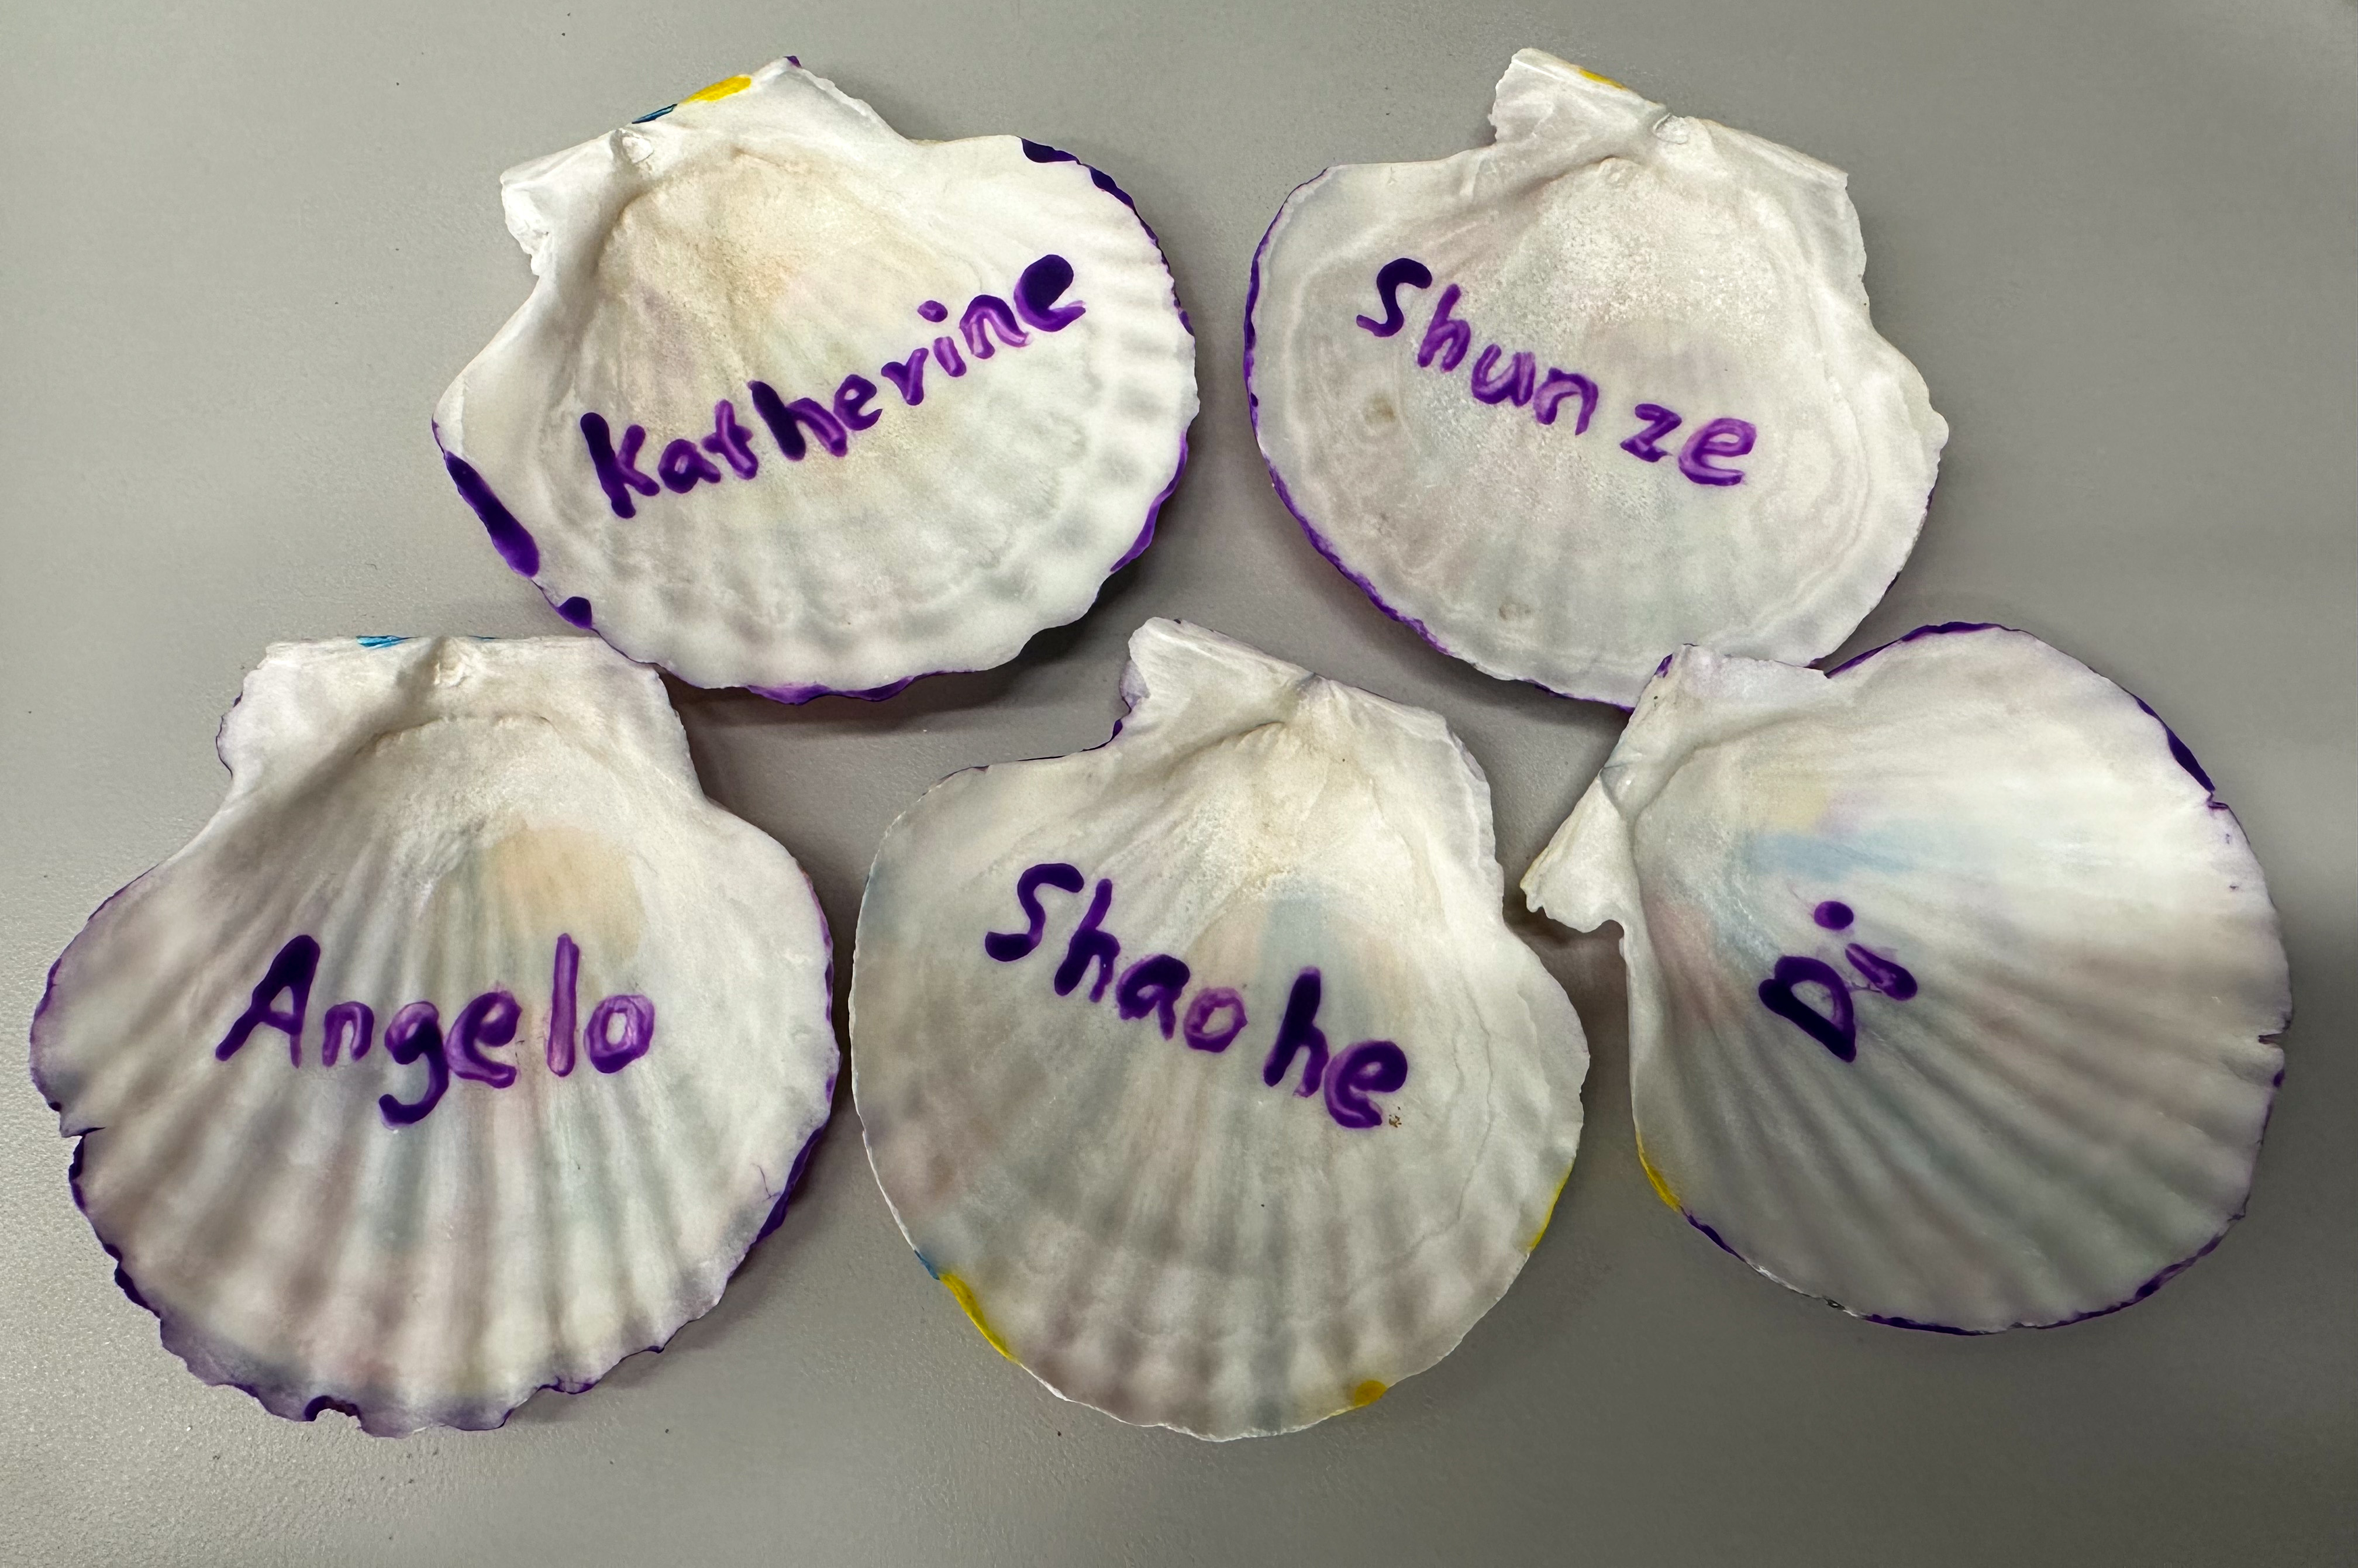 Katherine
Shunze
Angelo
Shaohe
Di